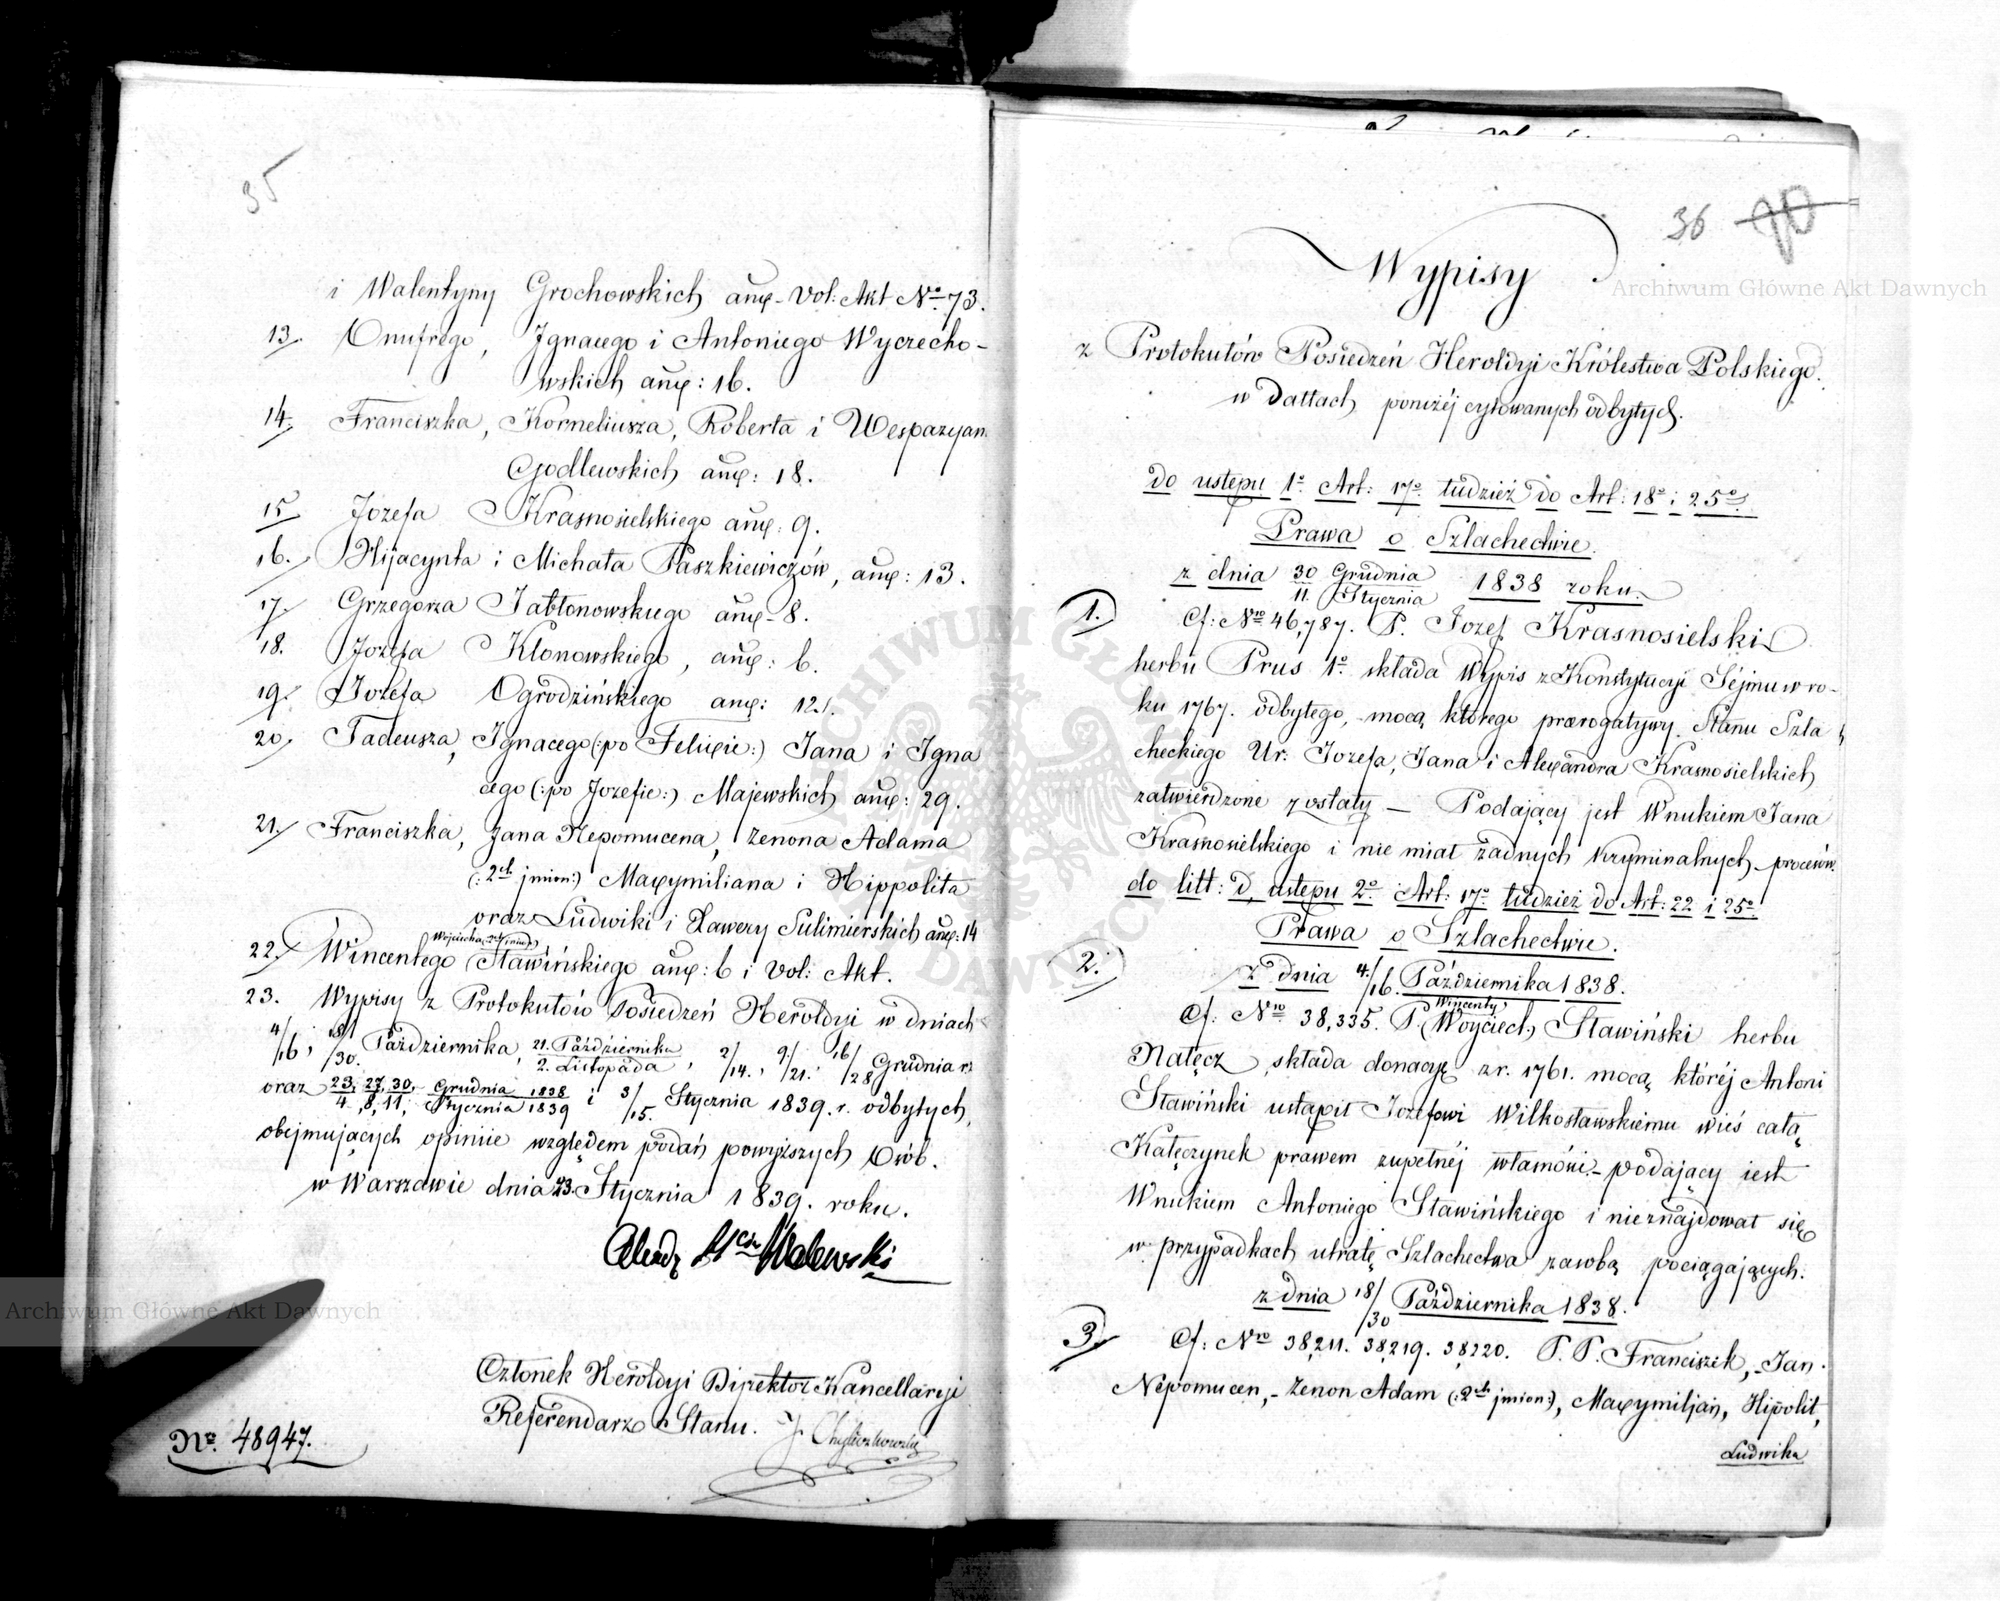 35
i Walentyny Grochowskich anx. Vol: Akt No 73.
13. Onufrego, Ignacego i Antoniego Wyczecho-
wskich anx: 16.
14. Franciszka, Korneliusza, Roberta i Wespazyan
Godlewskich anx: 18.
15. Jozefa Krasnosielskiego anx: 9.
16. Hijacynta i Michała Paszkiewiczów, anx: 13.
17. Grzegorza Jabłonowskiego anx. 8.
18. Jozefa Klonowskiego, anx: 6.
19. Jozefa Ogrodzińskiego anx: 12.
20. Tadeusza, Ignacego (:po Felixie:) Jana i Igna
cego (:po Jozefie:) Majewskich anx: 29.
21. Franciszka, Jana Nepomucena, Zenona Adama
(:2ch jmion:) Maxymiliana i Hippolita
oraz Ludwiki i Xawery Sulimierskich anx: 14
22. Wincentego Wojciecha (2ch imion) Sławińskiego anx: 6 i Vol: Akt.
23. Wypisy z Protokułów Posiedzeń Heroldyi w dniach
4/16, 18/30. Października, 21. Października / 2. Listopada, 2/14., 9/21., 16/28 Grudnia r.
oraz 23, 27, 30, Grudnia 1838 / 4, 8, 11, Stycznia 1839 i 3/15. Stycznia 1839. r. odbytych,
obejmujących opiniie względem podań powyższych Osób.
w Warszawie dnia 23. Stycznia 1839. roku.
Walewski
Członek Heroldyi Dyrektor Kancellaryi
Referendarz Stanu.
No. 48947.
36
Wypisy
z Protokułów Posiedzeń Heroldyi Królestwa Polskiego.
w Dattach poniżéj cytowanych odbytych.
do ustępu 1o Art: 17o tudzież do Art: 18o i 25o
Prawa o Szlachectwie.
z dnia 30 Grudnia / 11. Stycznia 1838 roku.
1. Cf: Nro 46,787. P. Jozef Krasnosielski
herbu Prus 1o składa Wypis z Konstytucyi Séjmu w ro-
ku 1767. odbytego, mocą którego prærogatywy Stanu Szla
checkiego Ur: Jozefa, Jana i Alexandra Krasnosielskich
zatwierdzone zostały — Podający jest Wnukiem Jana
Krasnosielskiego i nie miał żadnych kryminalnych procesów.
do litt: D, ustępu 2o Art: 17o tudzież do Art: 22 i 25o
Prawa o Szlachectwie.
2. z dnia 4/16. Października 1838.
Cf: Nro 38,335. P. Wincenty (Wojciech) Sławiński herbu
Nałęcz, składa donacyę z r. 1761. mocą któréj Antoni
Sławiński ustąpił Jozefowi Wilkosławskiemu wieś całą
Kałęczynek prawem zupełnéj własności – podający iest
Wnukiem Antoniego Sławińskiego i nieznajdował się
w przypadkach utratę Szlachectwa za sobą pociągających.
z dnia 18/30 Października 1838.
3. Cf: Nro 38,211. 38,219. 38,220. P. P. Franciszek, Jan
Nepomucen, Zenon Adam (:2ch jmion:), Maxymiljan, Hipolit,
Ludwika
Archiwum Główne Akt Dawnych
Archiwum Główne Akt Dawnych
ARCHIWUM GŁÓWNE AKT DAWNYCH